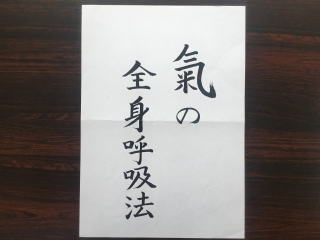 氣の
全身呼吸法